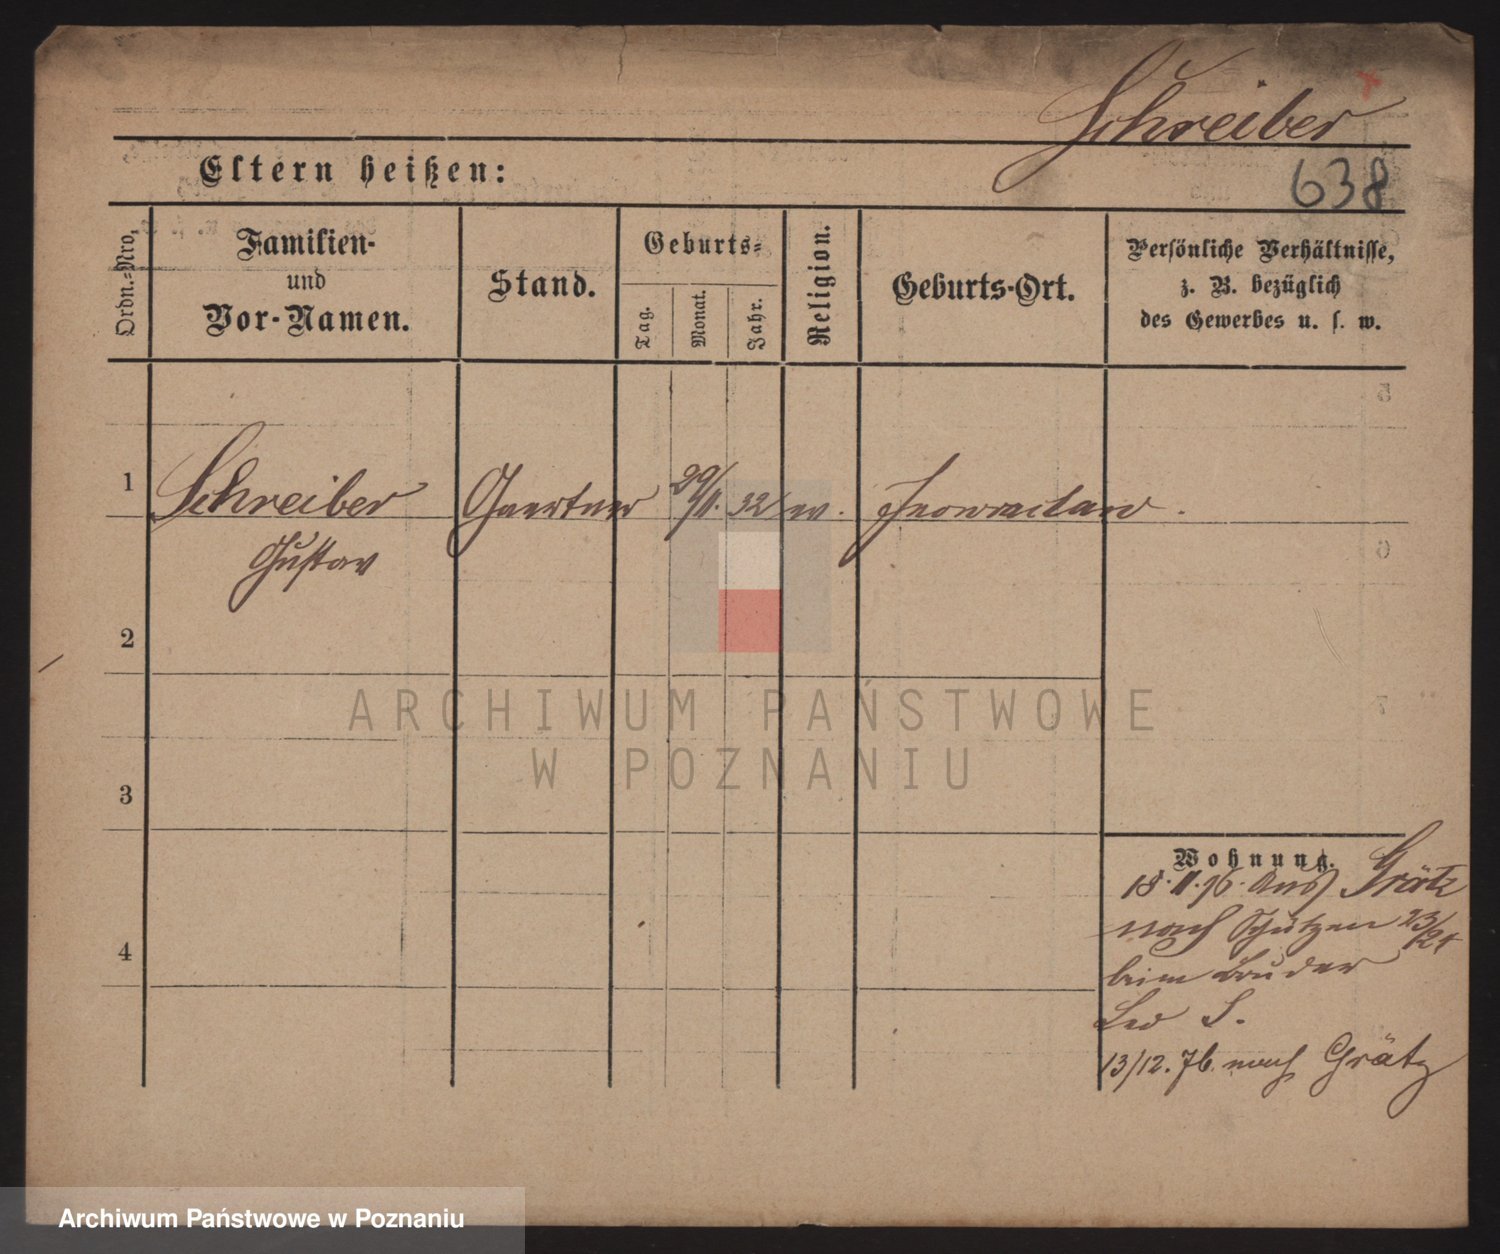 Schreiber
638
Eltern heißen:
Ordn.-Nro.
Familien-
und
Vor-Namen.
Stand.
Geburts-
Tag.
Monat.
Jahr.
Religion.
Geburts-Ort.
Persönliche Verhältnisse,
z. B. bezüglich
des Gewerbes u. s. w.
1
Schreiber Gaertner 29/11. 32 ev. Inowraclaw.
Gustav
2
3
4
Wohnung.
18.11.76. aus Grätz
nach Schützen 23/24
beim Bruder
Leo S.
13/12.76. nach Grätz
ARCHIWUM PAŃSTWOWE
W POZNANIU
Archiwum Państwowe w Poznaniu